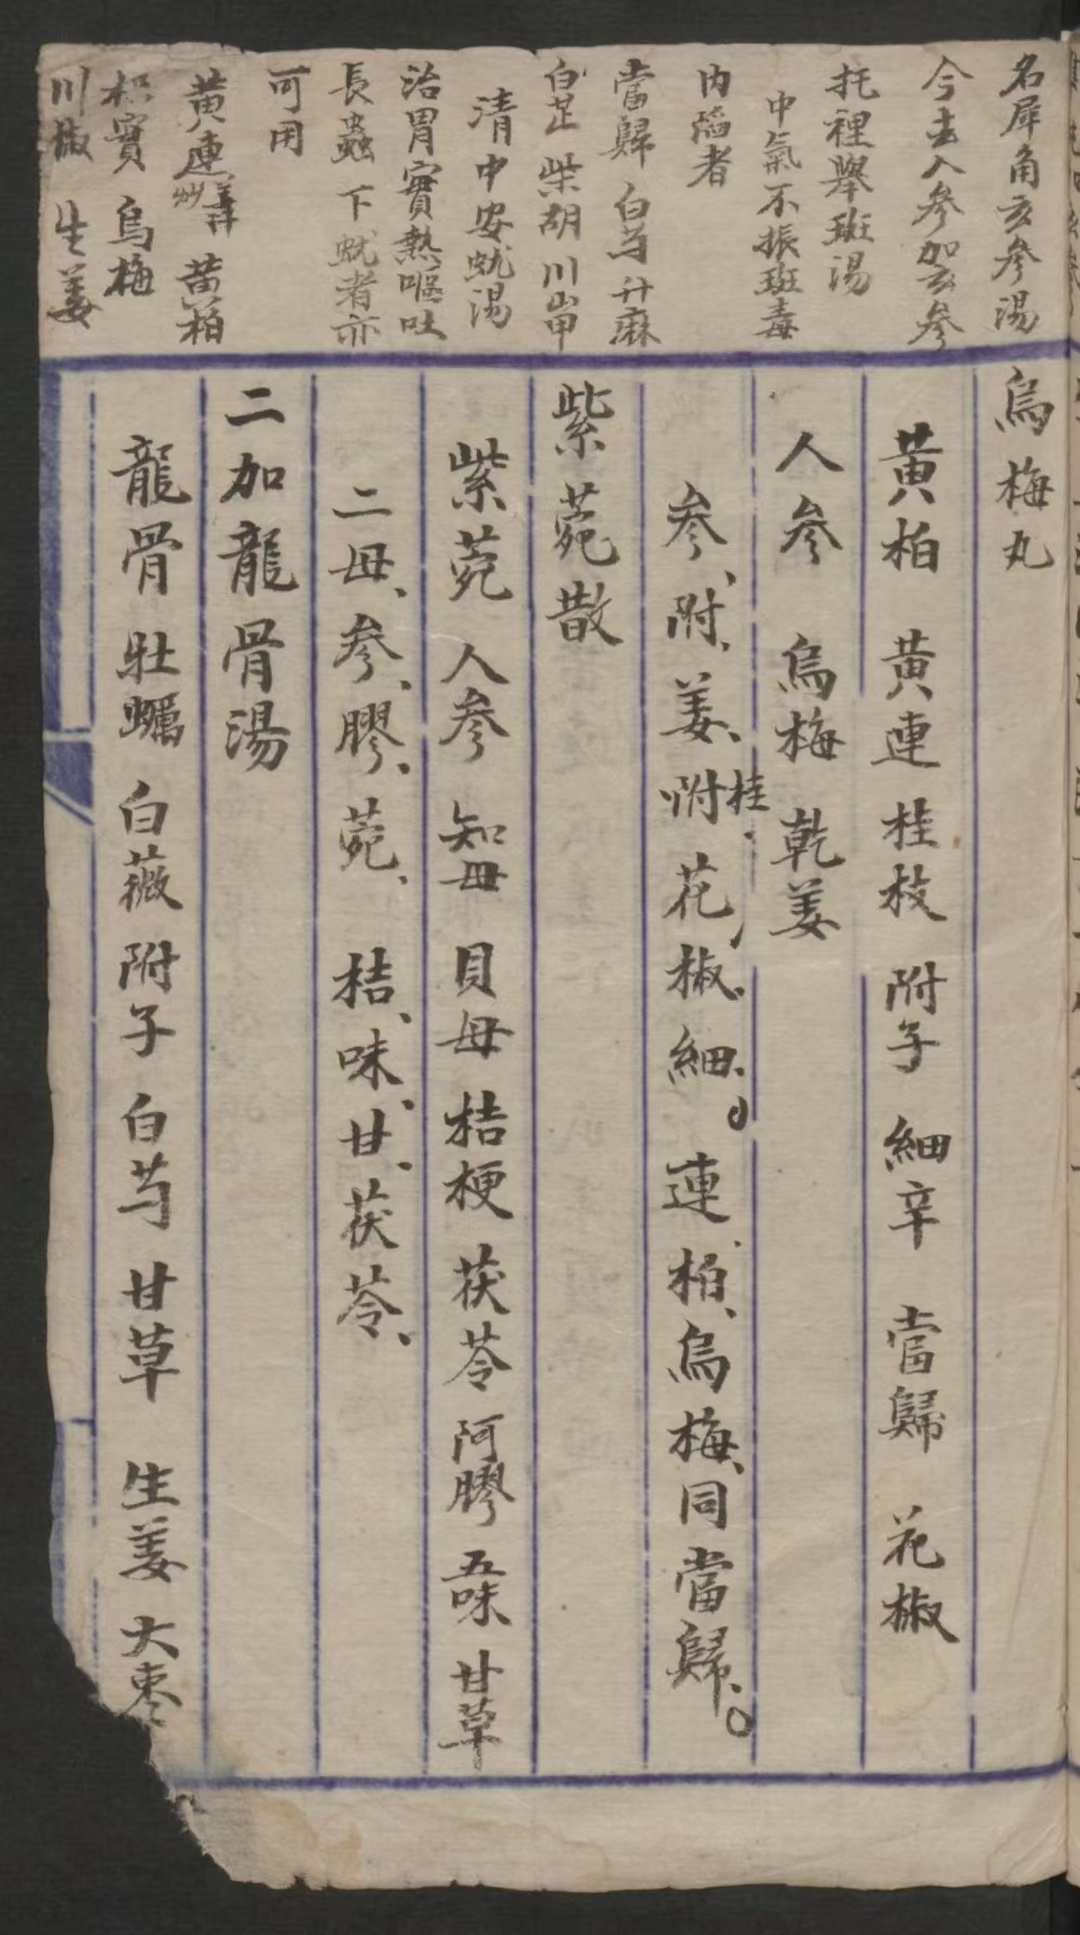 名犀角玄參湯
今去人參加玄參
托裡舉斑湯
中氣不振斑毒
內陷者
當歸 白芍 升麻
白芷 柴胡 川山甲
清中安蚘湯
治胃實熱嘔吐
長蟲下蚘者亦
可用
黃連 姜汁炒 黃柏
枳實 烏梅
川椒 生姜
烏梅丸
黃柏 黃連 桂枝 附子 細辛 當歸 花椒
人參 烏梅 乾姜
參、附、姜、附桂、花椒、細、連、柏、烏梅、同當歸、。
紫菀散
紫菀 人參 知母 貝母 桔梗 茯苓 阿膠 五味 甘草
二母、參、膠、菀、桔、味、甘、茯苓、
二加龍骨湯
龍骨 牡蠣 白薇 附子 白芍 甘草 生姜 大枣